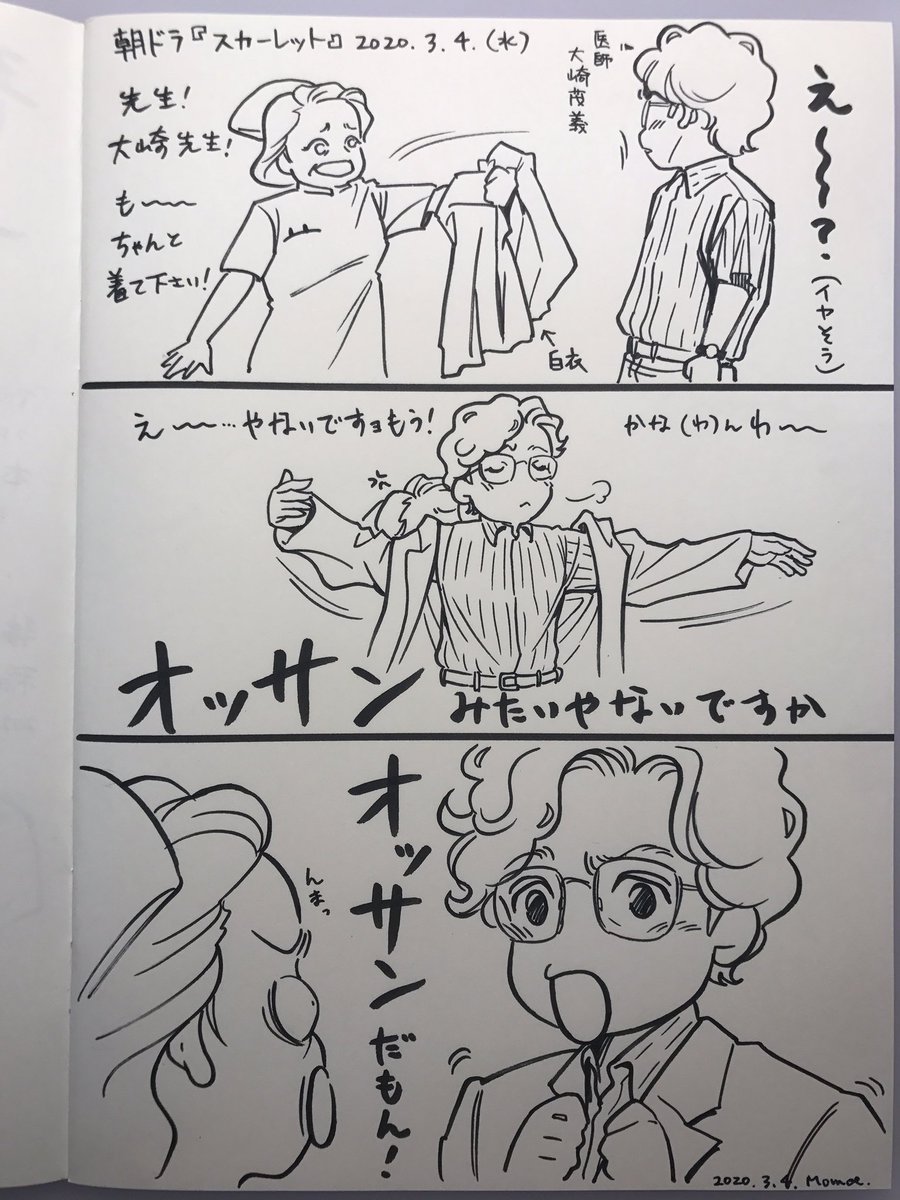 朝ドラ『スカーレット』2020.3.4.(水)
医師
大崎茂義
え〜〜?
(イヤそう)
先生!
大崎先生!
も〜〜
ちゃんと
着て下さい!
白衣
え〜〜…やないですョもう!
かな(わ)んわ〜
オッサン
みたいやないですか
オッサンだもん!
んまっ
2020.3.4. Momoe.